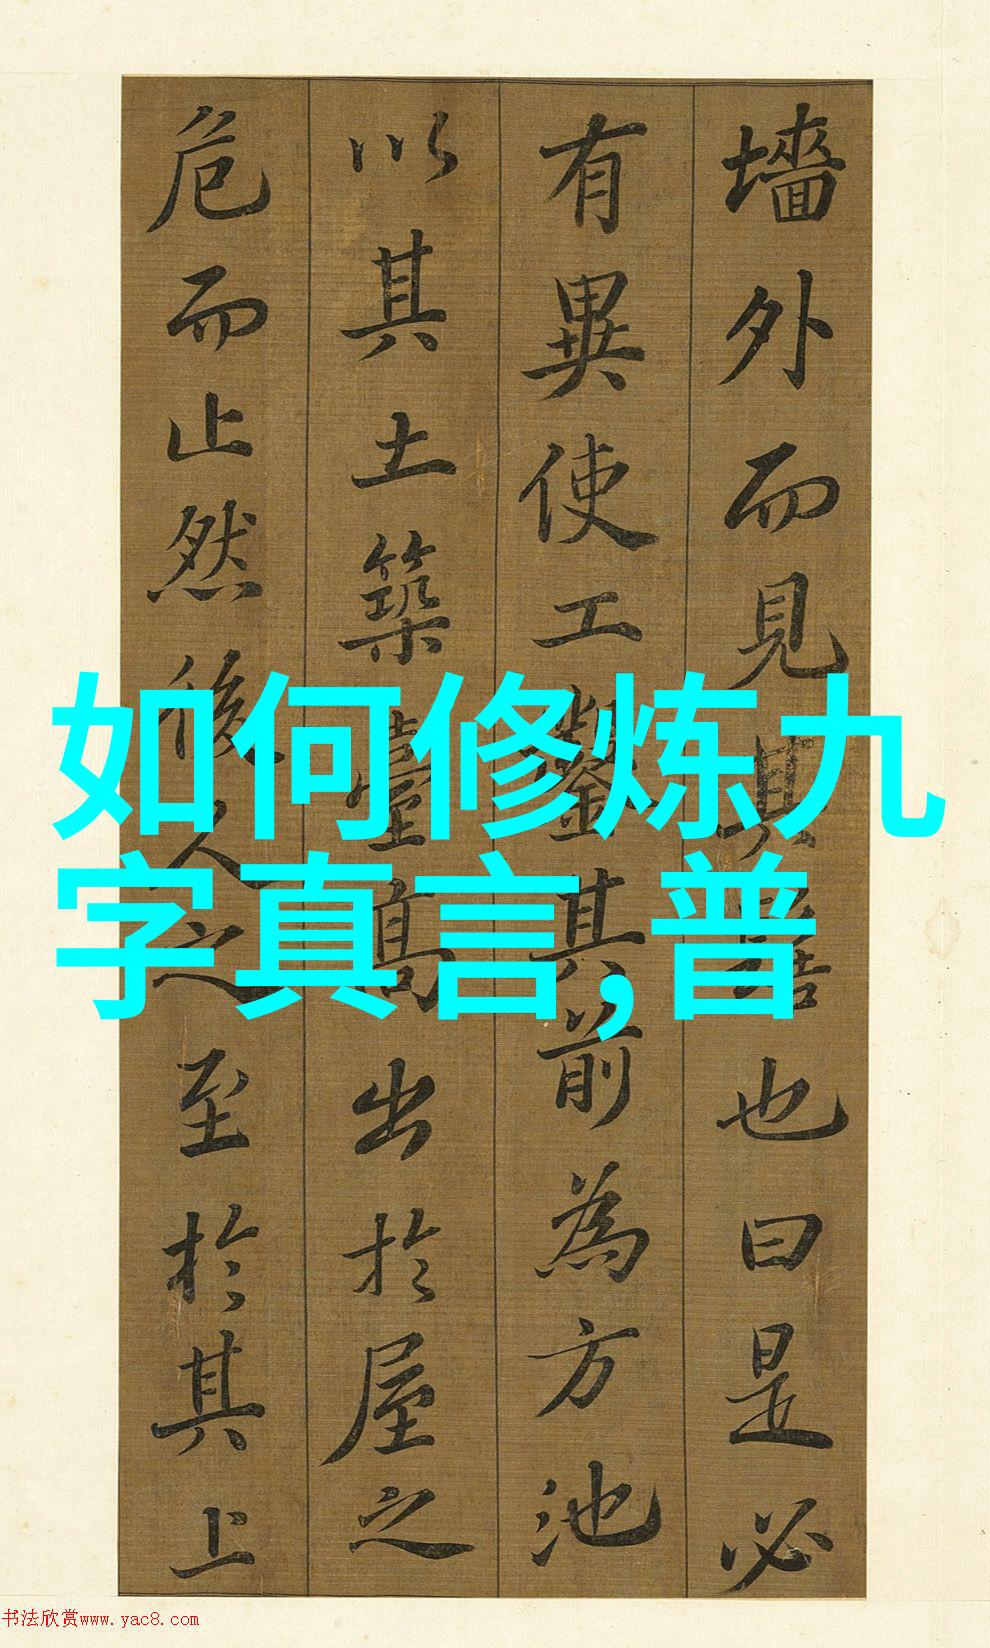 墻外而見其髻也曰是必
有異使工鑿其前為方池
以其土築臺高出於屋之
危而止然後人之至於其上
如何修炼九
字真言,普
书法欣赏www.yac8.com